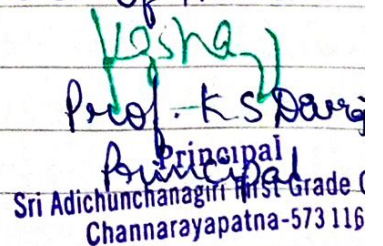 of
Prof. K S
Principal
Principal
Sri Adichunchanagiri First Grade
Channarayapatna-573 116